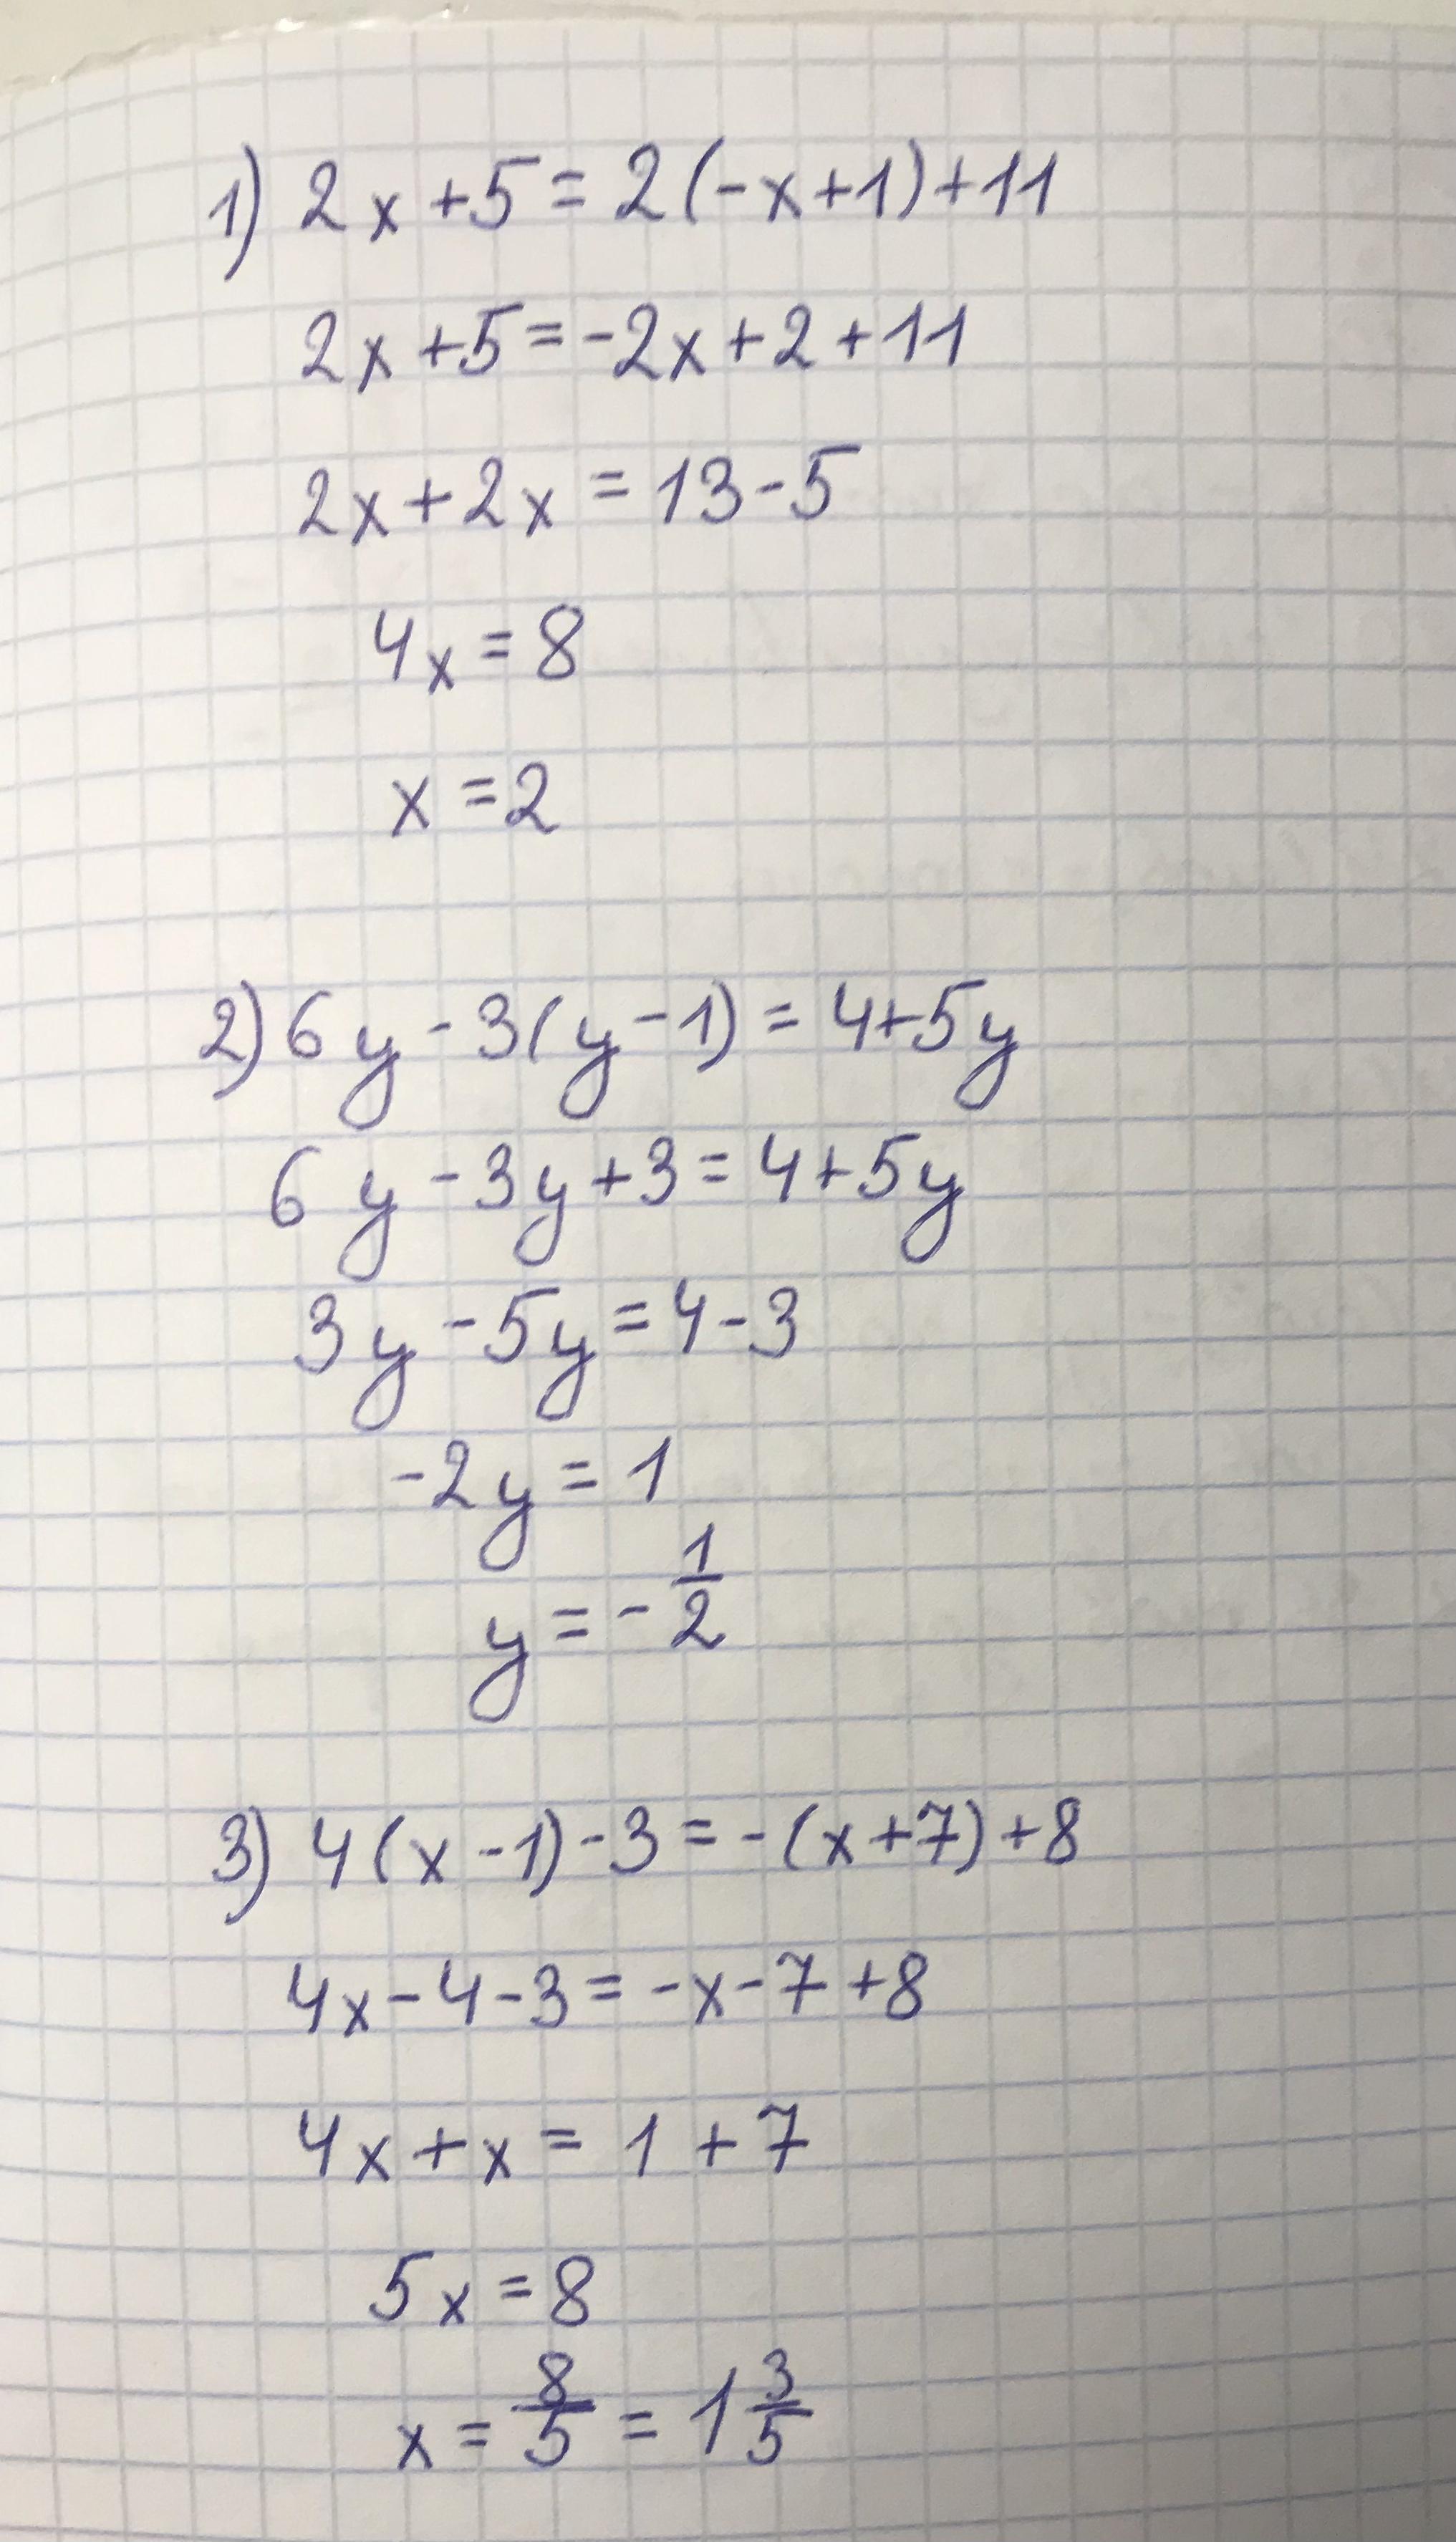 1) 2x+5=2(-x+1)+11
2x+5=-2x+2+11
2x+2x=13-5
4x=8
x=2
2) 6y-3(y-1)=4+5y
6y-3y+3=4+5y
3y-5y=4-3
-2y=1
y=-1/2
3) 4(x-1)-3=-(x+7)+8
4x-4-3=-x-7+8
4x+x=1+7
5x=8
x=8/5=1 3/5